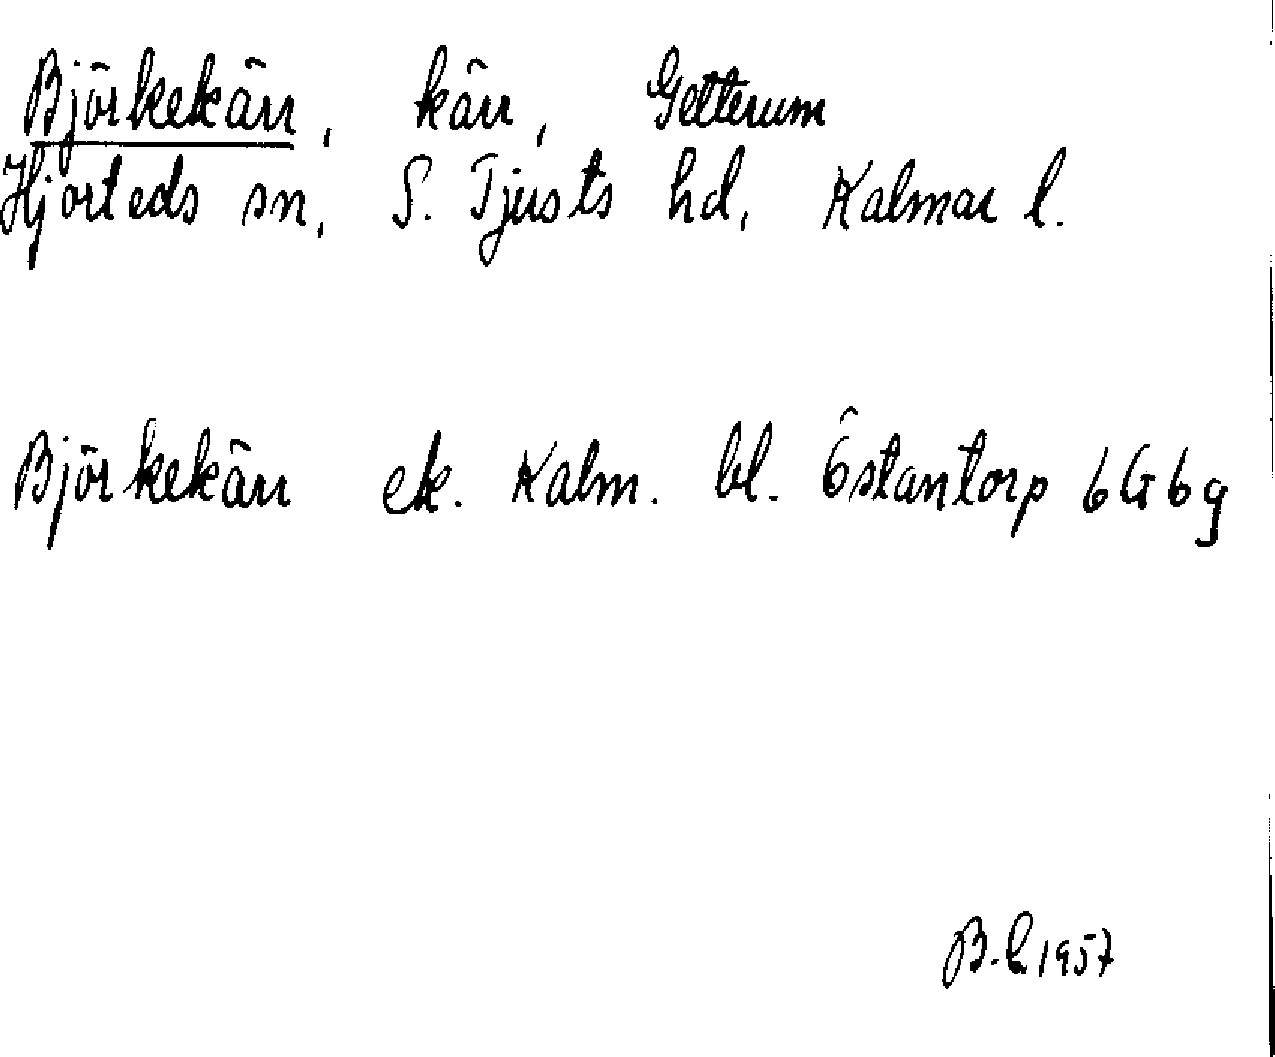 Björkekärr, kärr, Getterum
Hjorteds sn, S. Tjusts hd, Kalmar l.
Björkekärr ek. Kalm. bl. Östantorp 6G6g
B.L. 1957